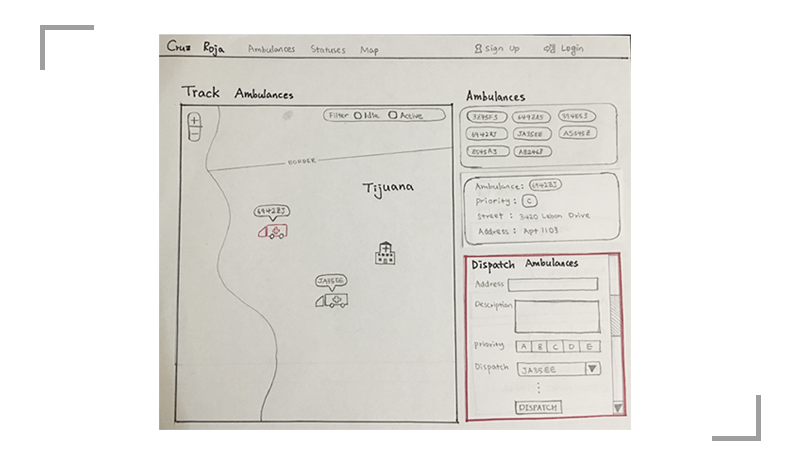 Cruz Roja Ambulances Statuses Map Sign Up Login
Track Ambulances
Filter Idle Active
+
−
BORDER
Tijuana
6942BJ
JA35EE
Ambulances
6942BJ JA35EE
Ambulance: 6942BJ
Priority: C
Street: 3420 Lebon Drive
Address: Apt 1103
Dispatch Ambulances
Address
Description
Priority A B C D E
Dispatch JA35EE
DISPATCH